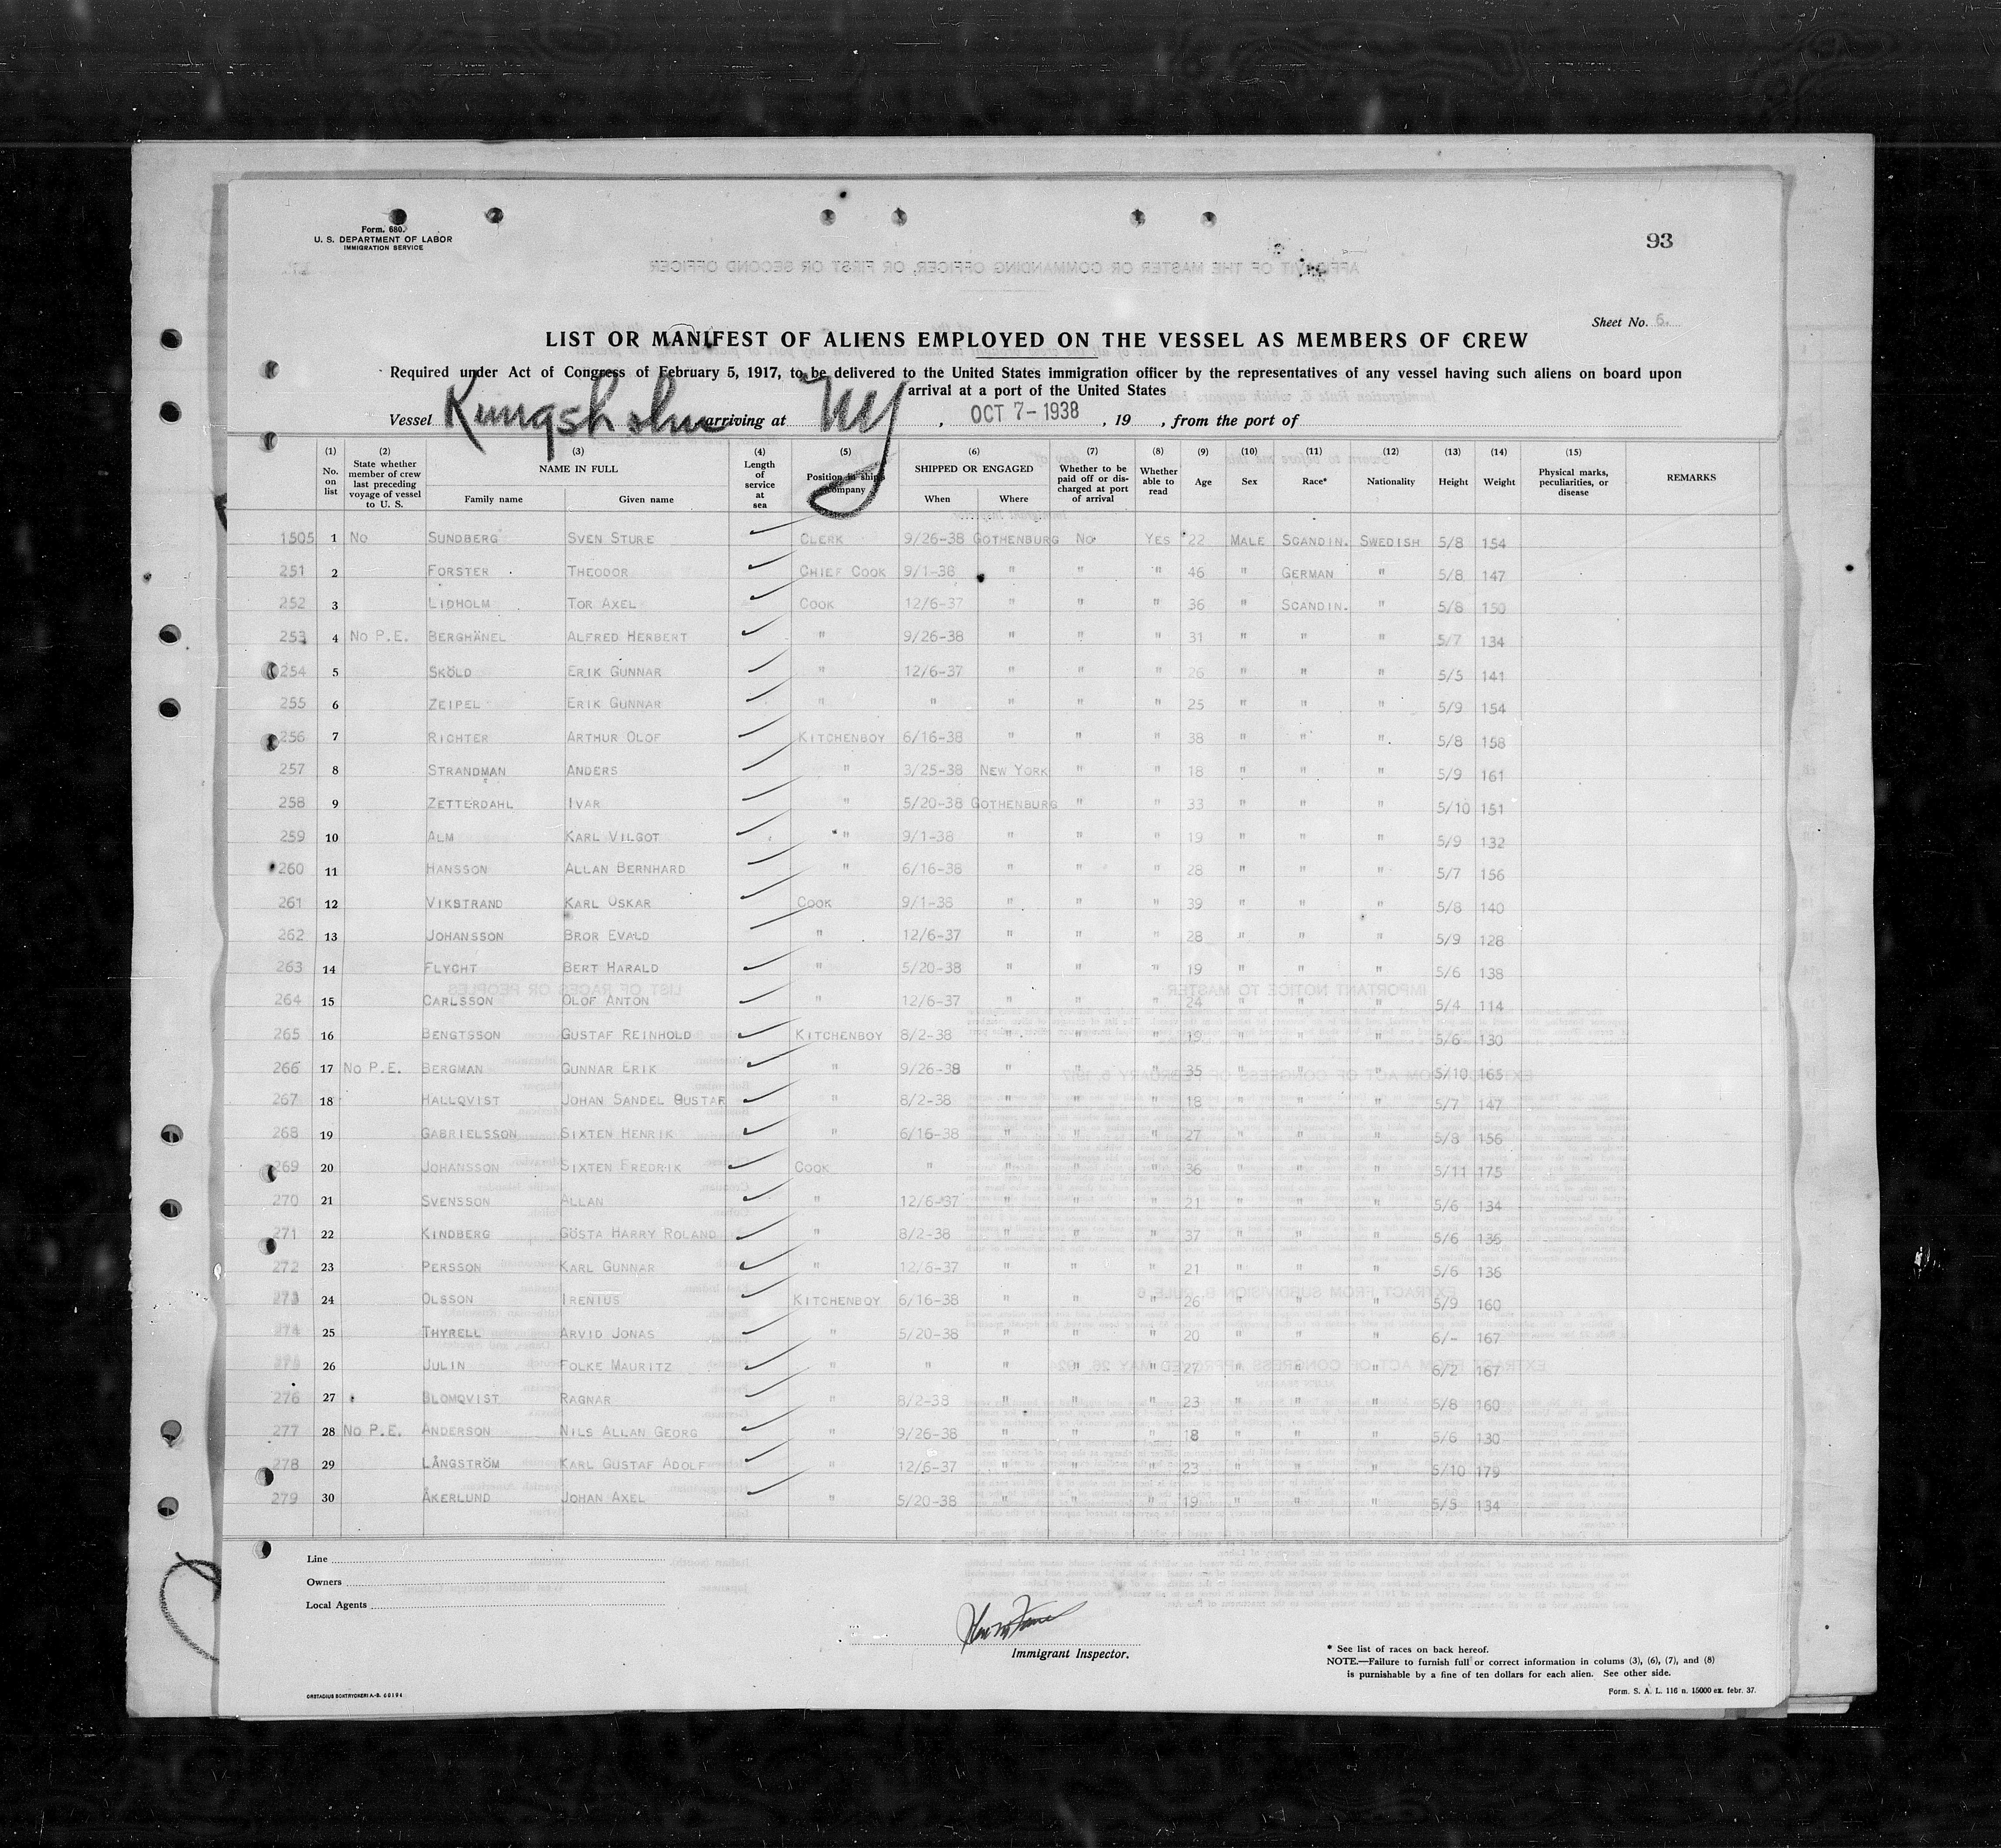 Form. 680.
U. S. DEPARTMENT OF LABOR
IMMIGRATION SERVICE
93
Sheet No. 6.
LIST OR MANIFEST OF ALIENS EMPLOYED ON THE VESSEL AS MEMBERS OF CREW
Required under Act of Congress of February 5, 1917, to be delivered to the United States immigration officer by the representatives of any vessel having such aliens on board upon
arrival at a port of the United States
Vessel Kungsholm arriving at NY, OCT 7-1938, 19 , from the port of
(1) No. on list (2) State whether member of crew last preceding voyage of vessel to U. S. (3) NAME IN FULL Family name Given name (4) Length of service at sea (5) Position in ship's company (6) SHIPPED OR ENGAGED When Where (7) Whether to be paid off or discharged at port of arrival (8) Whether able to read (9) Age (10) Sex (11) Race* (12) Nationality (13) Height (14) Weight (15) Physical marks, peculiarities, or disease REMARKS
1505 1 No SUNDBERG SVEN STURE CLERK 9/26-38 GOTHENBURG No YES 22 MALE SCANDIN. SWEDISH 5/8 154
251 2 FORSTER THEODOR CHIEF COOK 9/1-38 " " " 46 " GERMAN " 5/8 147
252 3 LIDHOLM TOR AXEL COOK 12/6-37 " " " 36 " SCANDIN. " 5/8 150
253 4 No P.E. BERGHÄNEL ALFRED HERBERT " 9/26-38 " " " 31 " " " 5/7 134
254 5 SKÖLD ERIK GUNNAR " 12/6-37 " " " 26 " " " 5/5 141
255 6 ZEIPEL ERIK GUNNAR " " " " " 25 " " " 5/9 154
256 7 RICHTER ARTHUR OLOF KITCHENBOY 6/16-38 " " " 38 " " " 5/8 158
257 8 STRANDMAN ANDERS " 3/25-38 NEW YORK " " 18 " " " 5/9 161
258 9 ZETTERDAHL IVAR " 5/20-38 GOTHENBURG " " 33 " " " 5/10 151
259 10 ALM KARL VILGOT " 9/1-38 " " " 19 " " " 5/9 132
260 11 HANSSON ALLAN BERNHARD " 6/16-38 " " " 28 " " " 5/7 156
261 12 VIKSTRAND KARL OSKAR COOK 9/1-38 " " " 39 " " " 5/8 140
262 13 JOHANSSON BROR EVALD " 12/6-37 " " " 28 " " " 5/9 128
263 14 FLYCHT BERT HARALD " 5/20-38 " " " 19 " " " 5/6 138
264 15 CARLSSON OLOF ANTON " 12/6-37 " " " 24 " " " 5/4 114
265 16 BENGTSSON GUSTAF REINHOLD KITCHENBOY 8/2-38 " " " 19 " " " 5/6 130
266 17 No P.E. BERGMAN GUNNAR ERIK " 9/26-38 " " " 35 " " " 5/10 165
267 18 HALLQVIST JOHAN SANDEL GUSTAF " 8/2-38 " " " 18 " " " 5/7 147
268 19 GABRIELSSON SIXTEN HENRIK " 6/16-38 " " " 27 " " " 5/8 156
269 20 JOHANSSON SIXTEN FREDRIK COOK " " " " 36 " " " 5/11 175
270 21 SVENSSON ALLAN " 12/6-37 " " " 21 " " " 5/6 134
271 22 KINDBERG GÖSTA HARRY ROLAND " 8/2-38 " " " 37 " " " 5/6 136
272 23 PERSSON KARL GUNNAR " 12/6-37 " " " 21 " " " 5/6 136
273 24 OLSSON IRENIUS KITCHENBOY 6/16-38 " " " 26 " " " 5/9 160
274 25 THYRELL ARVID JONAS " 5/20-38 " " " 20 " " " 6/- 167
275 26 JULIN FOLKE MAURITZ " " " " " 27 " " " 6/2 167
276 27 BLOMQVIST RAGNAR " 8/2-38 " " " 23 " " " 5/8 160
277 28 No P.E. ANDERSON NILS ALLAN GEORG " 9/26-38 " " " 18 " " " 5/6 130
278 29 LÅNGSTRÖM KARL GUSTAF ADOLF " 12/6-37 " " " 23 " " " 5/10 179
279 30 ÅKERLUND JOHAN AXEL " 5/20-38 " " " 19 " " " 5/5 134
Line
Owners
Local Agents
Immigrant Inspector.
* See list of races on back hereof.
NOTE.—Failure to furnish full or correct information in colums (3), (6), (7), and (8)
is punishable by a fine of ten dollars for each alien. See other side.
ORSTADIUS BOKTRYCKERI A.-B. 60194
Form. S. A. L. 116 n. 15000 ex. febr. 37.